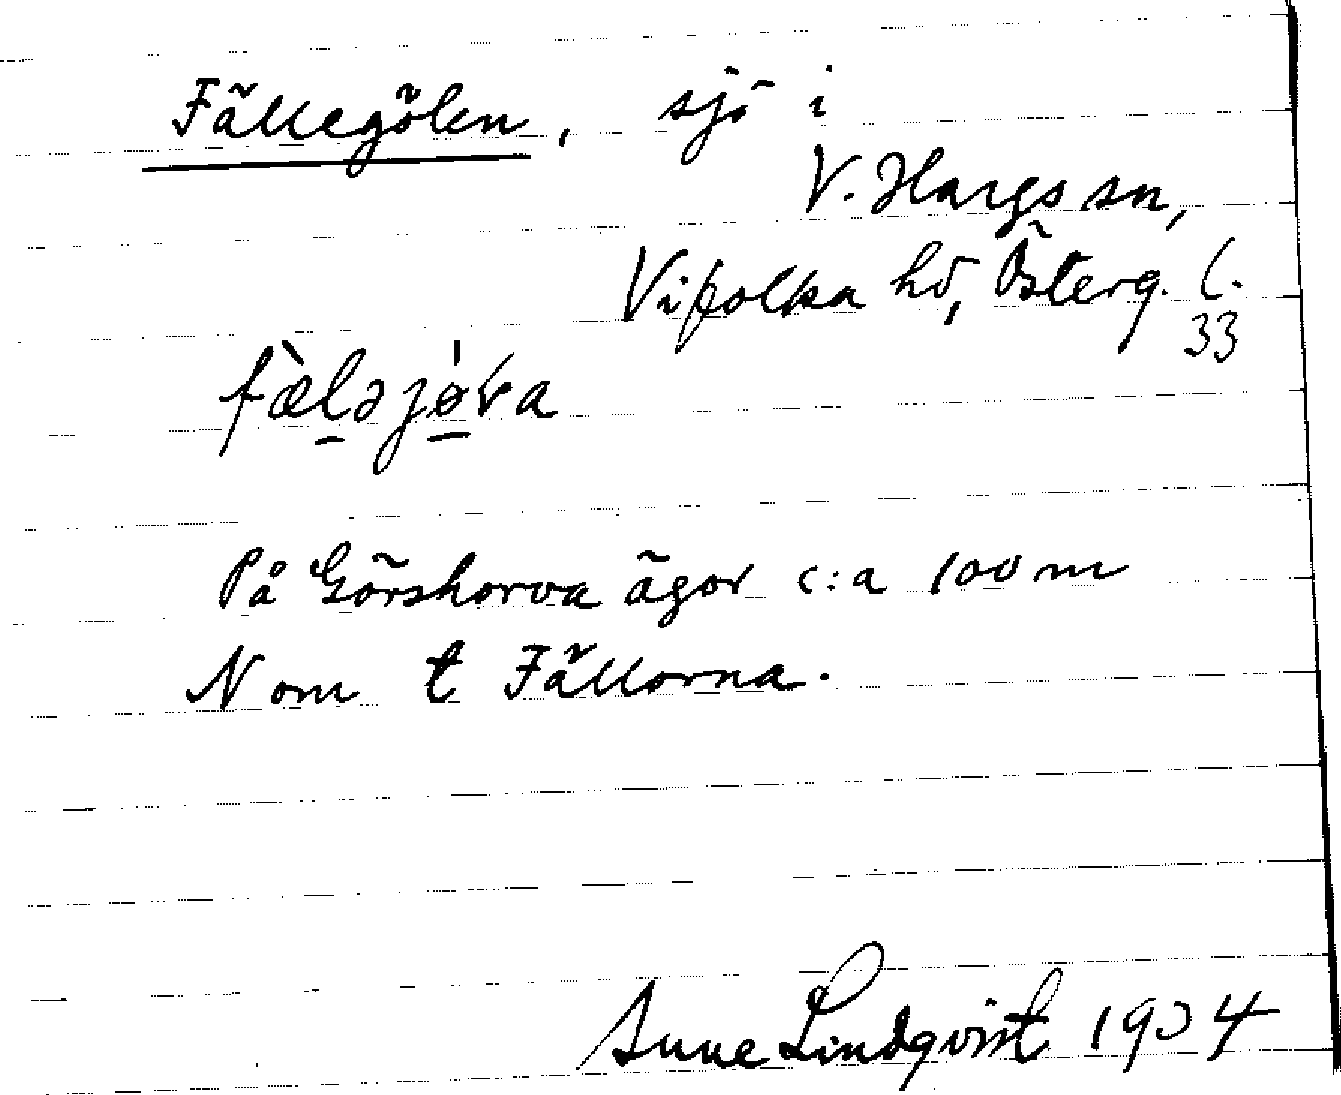 Fällegölen, sjö i
V. Hargs sn,
Vifolka hd, Österg. l.
33
fæ̀lǝjø̀ra
På Görshorva ägor c:a 100 m
N om t Fällorna.
Sune Lindqvist 1934